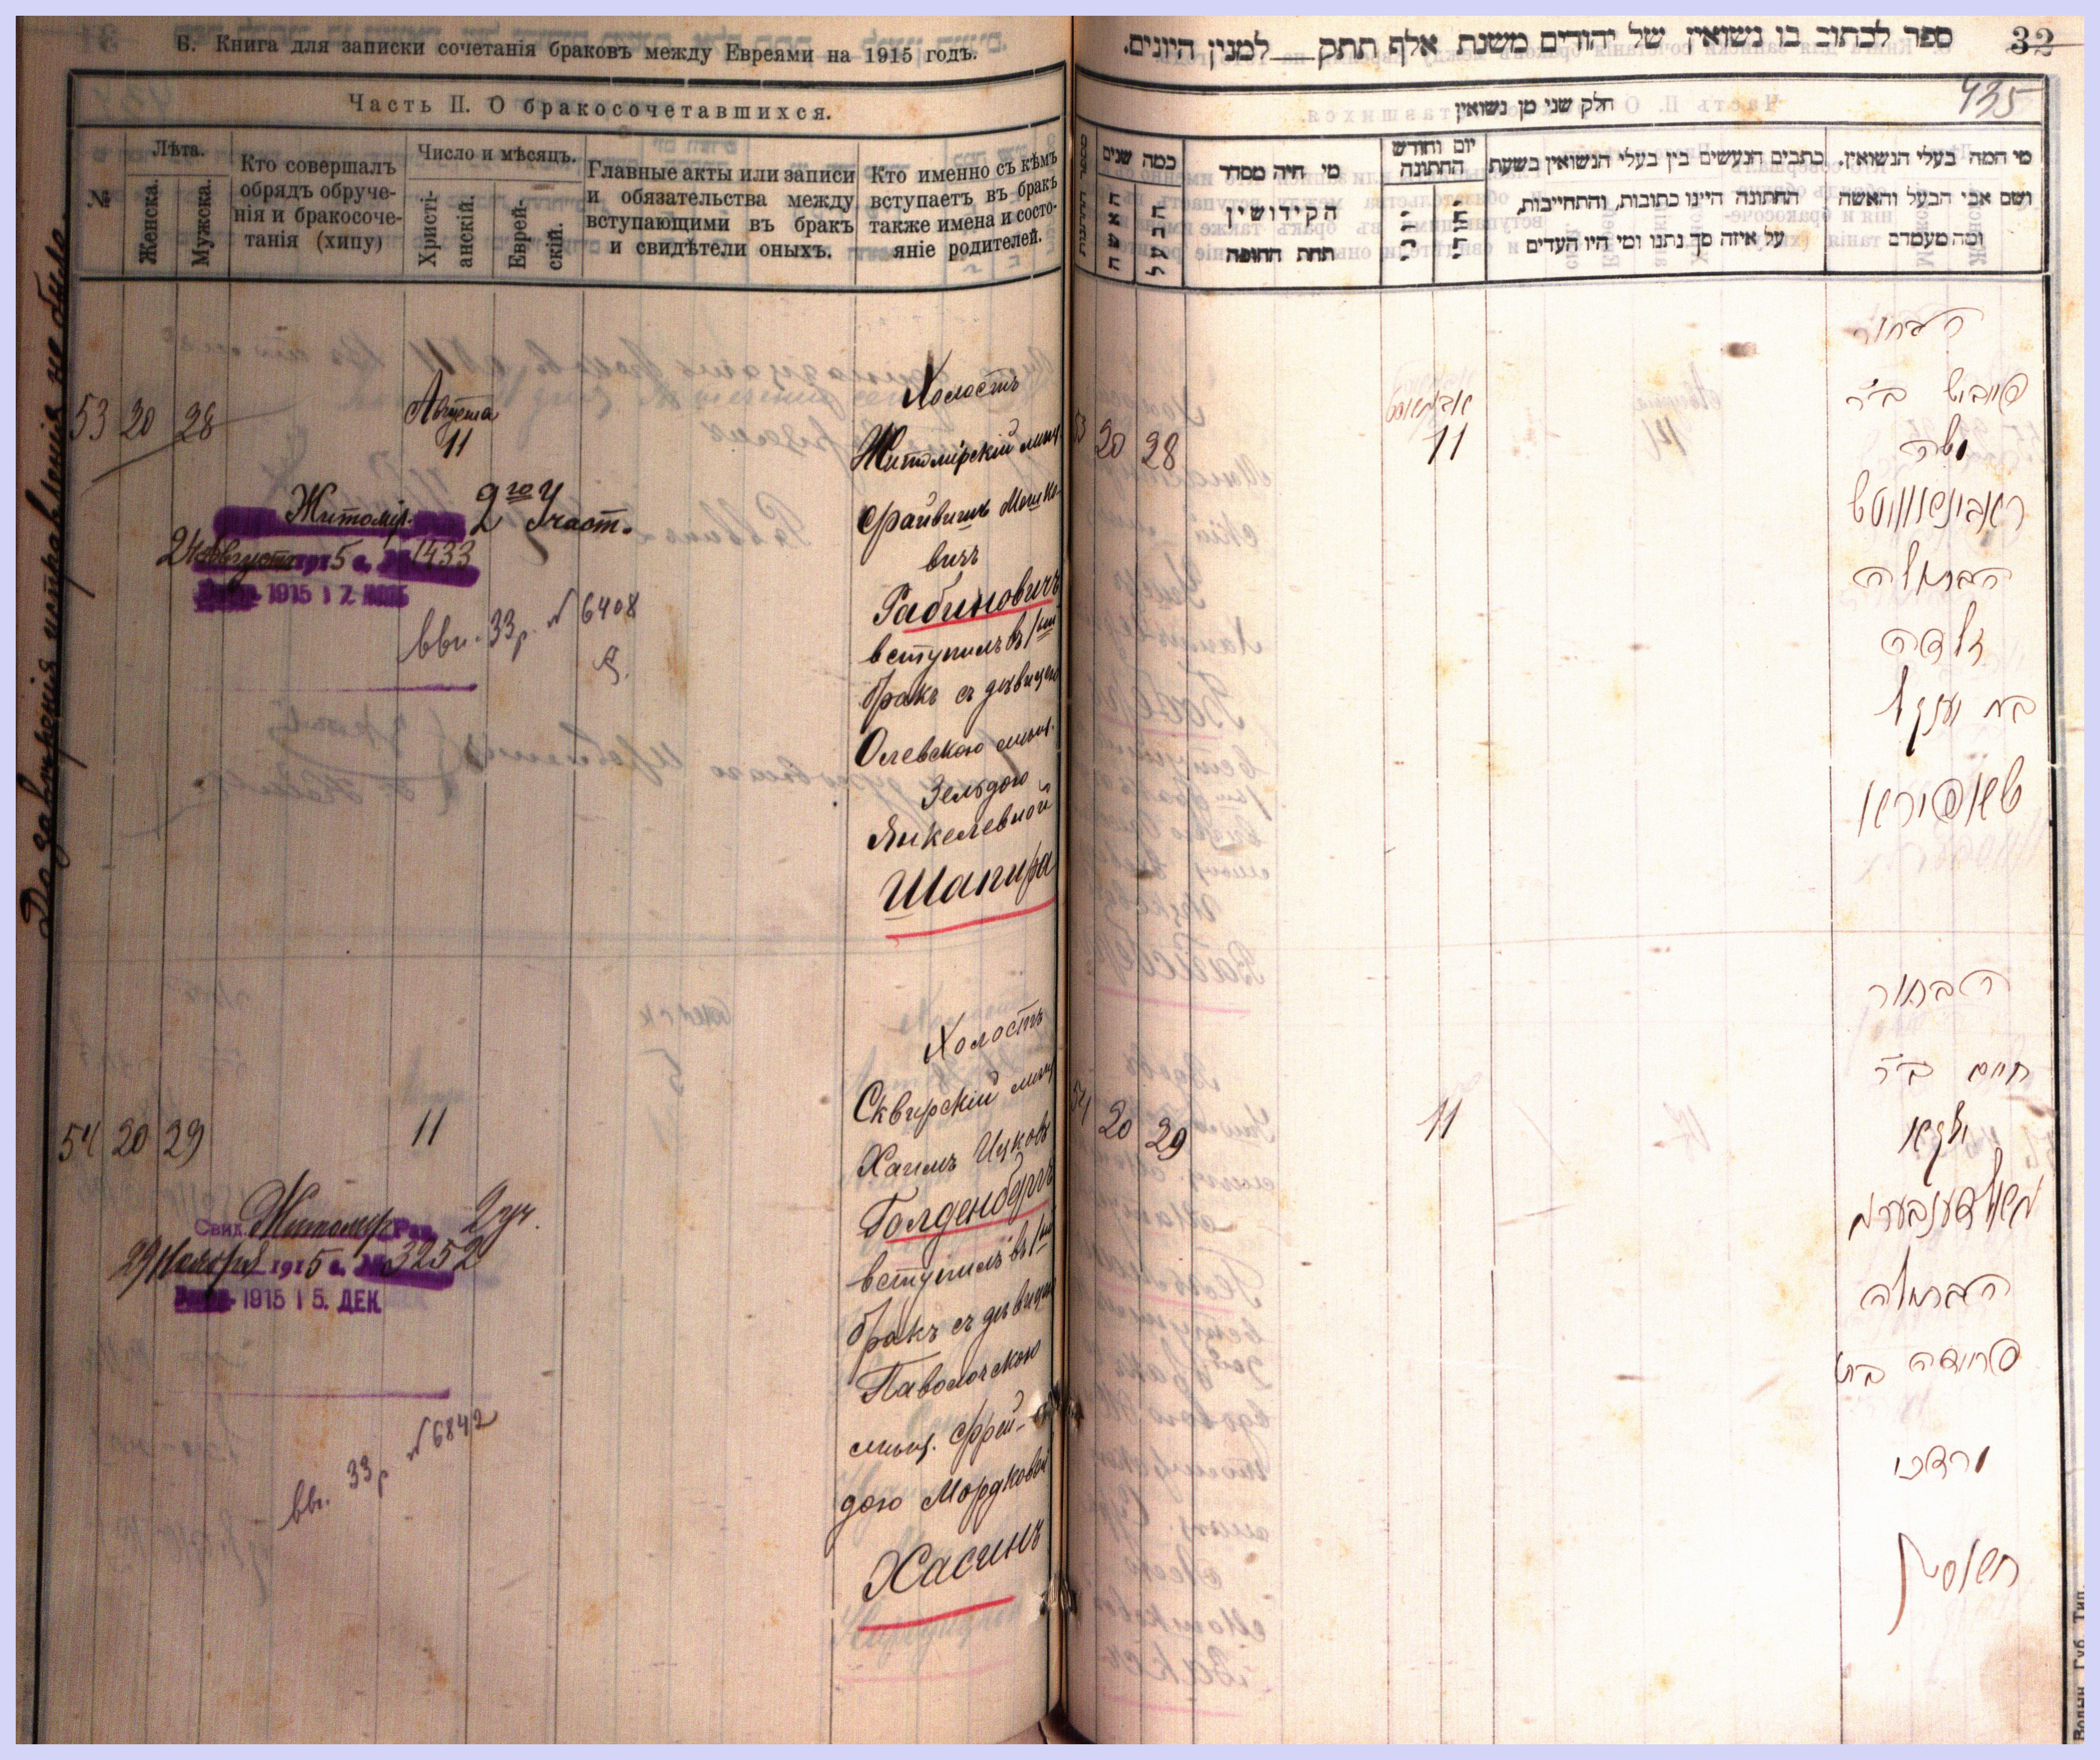 Б. Книга для записки сочетанія браковъ между Евреями на 1915 годъ.
Часть II. О бракосочетавшихся.
№
Лѣта.
Женска.
Мужска.
Кто совершалъ
обрядъ обруче-
нія и бракосоче-
танія (хипу)
Число и мѣсяцъ.
Христі-
анскій.
Еврей-
скій.
Главные акты или записи
и обязательства между
вступающими въ бракъ
и свидѣтели оныхъ.
Кто именно съ кѣмъ
вступаетъ въ бракъ
также имена и состо-
яніе родителей.
До завѣренія исправленія не было
53 20 28
Августа
11
Холостъ
Житомірскій мѣщ.
Файвишъ Мошко-
вичъ
Рабиновичъ
вступилъ въ 1ый
бракъ съ дѣвицею
Олевскою мѣщ.
Зельдою
Янкелевной
Шапира
Житомір. 2го Участ.
24 Августа 1915 г. № 1433
1915 1 7.
вви. 33 р. № 6408
54 20 29
11
Холостъ
Сквирскій мѣщ.
Хаимъ Ицковъ
Голденбергъ
вступилъ въ 1ый
бракъ съ дѣвицею
Паволочскою
мѣщ. Фрей-
дою Мордковой
Хасинъ
Свид. Житомир Рав. 2 уч.
29 Ноября 1915 г. № 3252
1915 1 5. ДЕК
вви. 33 р № 6842
ספר לכתוב בו נשואין של יהודים משנת אלף תתק למנין היונים.
32
435
חלק שני מן נשואין
כמה שנים
האשה
הבעל
מי היה מסדר
הקידושין
תחת החופה
יום וחודש
החתונה
כתבים הנעשים בין בעלי הנשואין בשעת
החתונה היינו כתובות, והתחייבות,
על איזה סך נתנו ומי היו העדים
מי המה בעלי הנשואין,
ושם אבי הבעל והאשה
ומה מעמדם
53 20 28
אבגוסט
11
הבחור
פייביש ב״ר
משה
ראבינאוויטש
הבתולה
זלדה
בת יענקל
שאפירא
54 20 29
11
הבחור
חיים ב״ר
יצקא
גאלדענבערג
הבתולה
פריידה בת
מרדכי
חאסין
Волын. Губ. Тип.